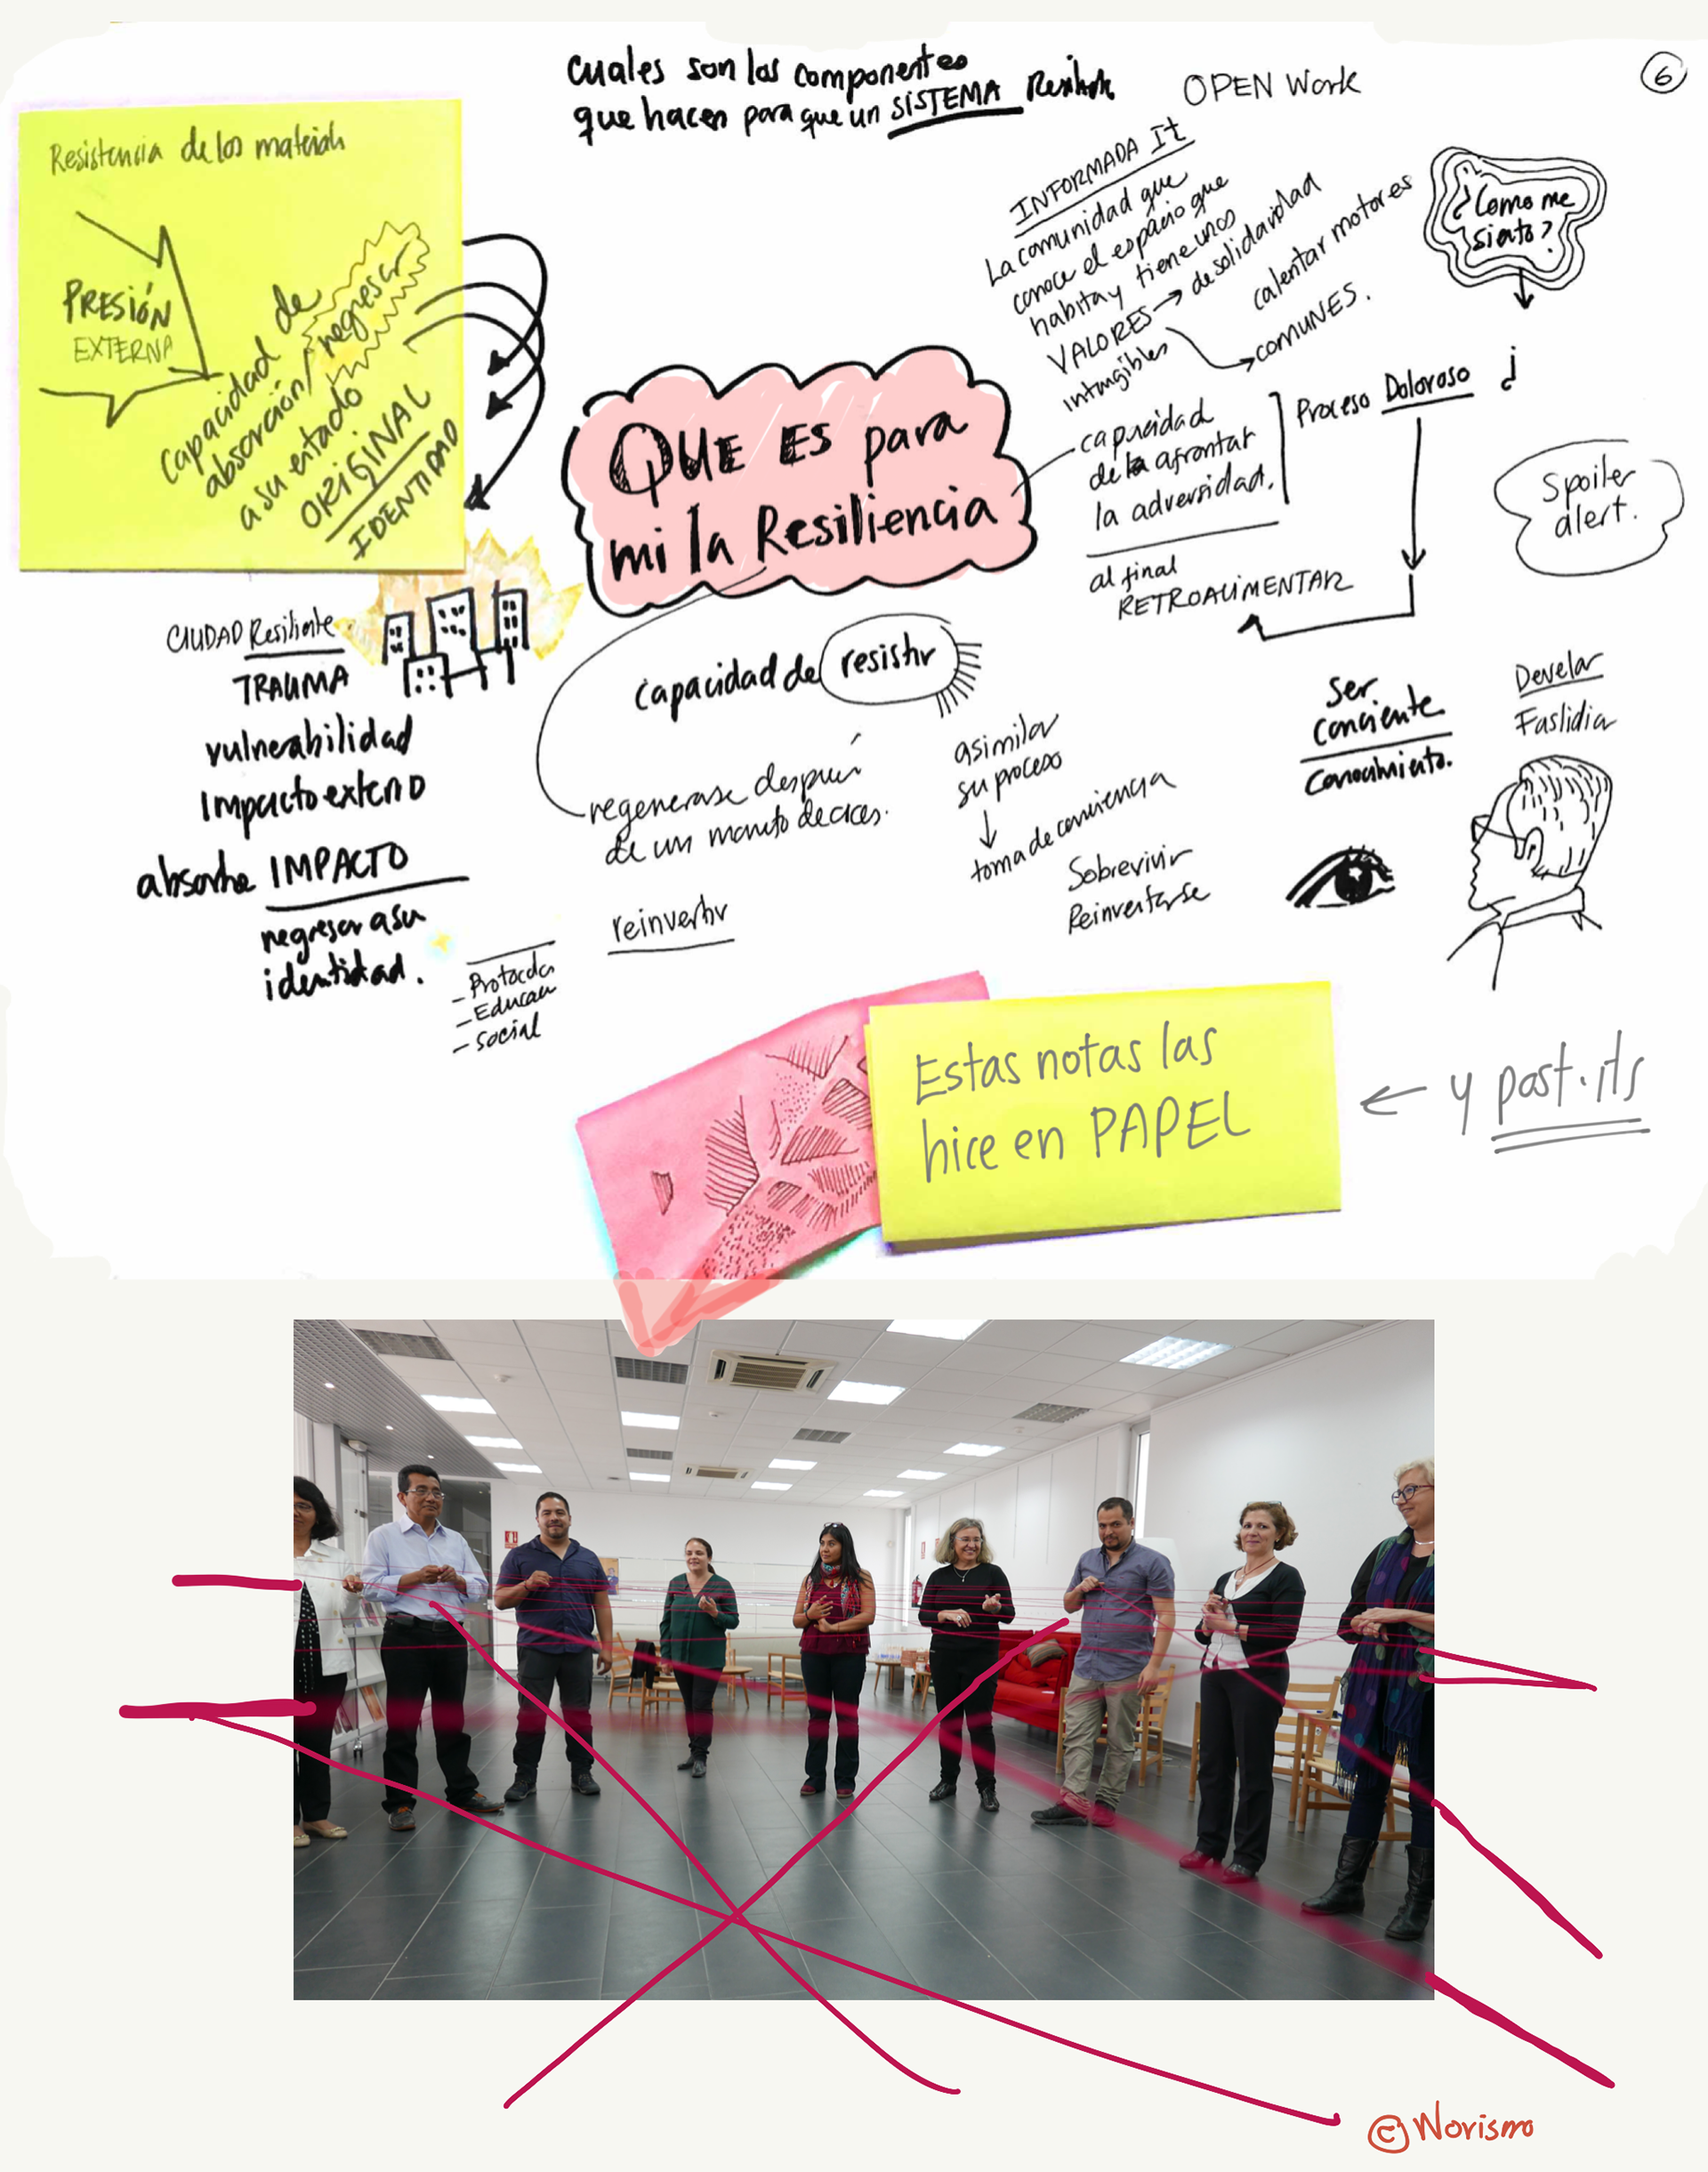 cuales son los componentes
que hacen para que un SISTEMA
OPEN Work
6
Resistencia de los
PRESIÓN
EXTERNA
Capacidad de
absorción/regresar
a su estado
ORIGINAL
IDENTIDAD
INFORMADA It
La comunidad que
conoce el espacio que
habita y tiene unos
VALORES → de solidaridad
intangibles
comUNES.
calentar motores
¿Como me
siento?
QUE ES para
mi la Resiliencia
capacidad
de la afrontar
la adversidad.
Proceso Doloroso
¿
al final
RETROALIMENTAR
Spoiler
alert.
CIUDAD Resiliente
TRAUMA
vulnerabilidad
Impacto externo
absorbe IMPACTO
regresar a su
identidad.
- Educacu
- Social
capacidad de resistir
regenerase después
de un
reinvertir
asimilar
su proceso
toma de conciencia
Sobrevivir
Reinventarse
Ser
conciente
Conocimiento.
Develar
Estas notas las
hice en PAPEL
← y post.its
© Norismo